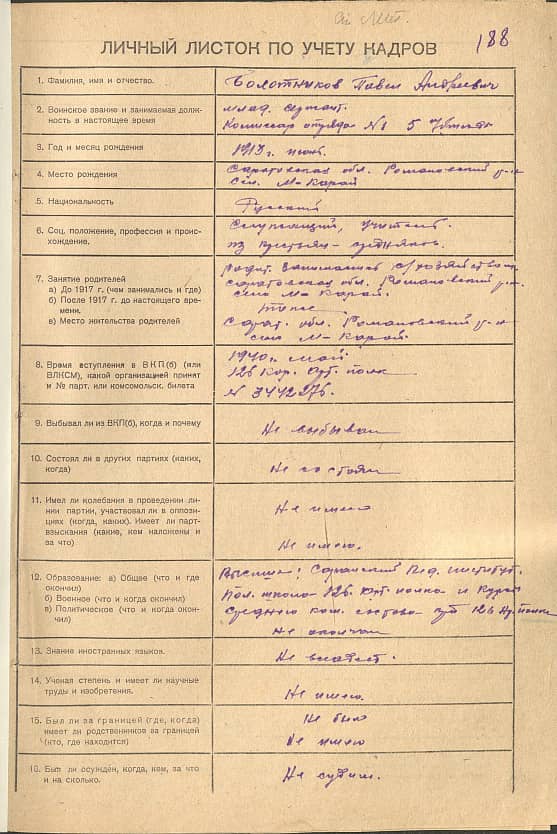 188
ЛИЧНЫЙ ЛИСТОК ПО УЧЕТУ КАДРОВ
1. Фамилия, имя и отчество.
Болотников Павел Андреевич
2. Воинское звание и занимаемая долж-
ность в настоящее время
млад. сержант.
Комиссар отряда №1 5
3. Год и месяц рождения
1913 г. июнь.
4. Место рождения
Саратовская обл. Романовский р-н
сел. М-Карай
5. Национальность
Русский
6. Соц. положение, профессия и проис-
хождение.
Служащий, учитель
из крестьян-бедняков.
7. Занятие родителей
а) До 1917 г. (чем занимались и где)
б) После 1917 г. до настоящего вре-
мени.
в) Место жительства родителей
родит. занимались с/хозяйством
Саратовская обл. Романовский р-н
село М-Карай.
тоже
Сарат. обл. Романовский р-н
село М-Карай.
8. Время вступления в ВКП(б) (или
ВЛКСМ), какой организацией принят
и № парт. или комсомольск. билета
1940 г. май
126 Кор. Арт. полк
N 3442276.
9. Выбывал ли из ВКП(б), когда и почему
Не выбывал
10. Состоял ли в других партиях (каких,
когда)
Не состоял
11. Имел ли колебания в проведении ли-
нии партии, участвовал ли в оппози-
циях (когда, каких). Имеет ли парт-
взыскания (какие, кем наложены и
за что)
Не имею
Не имею.
12. Образование: а) Общее (что и где
окончил)
б) Военное (что и когда окончил)
в) Политическое (что и когда окон-
чил)
Высшее: Пед. институт.
Пол. школа 126 Арт. полка и Курсы
Среднего ком. состава при 126 Ар. полке
Не окончил
13. Знание иностранных языков.
Не владеет.
14. Ученая степень и имеет ли научные
труды и изобретения.
Не имею.
15. Был ли за границей (где, когда)
имеет ли родственников за границей
(кто, где находится)
Не был
Не имею
16. Был ли осуждён, когда, кем, за что
и на сколько.
Не судим.